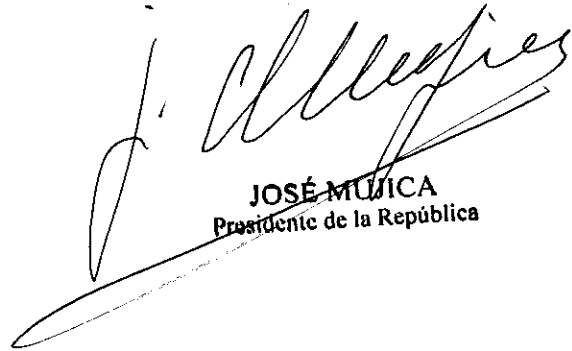 J. Mujica
JOSÉ MUJICA
Presidente de la República